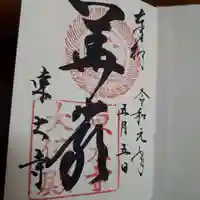 奉拝
令和元年
五月五日
華厳
東大寺